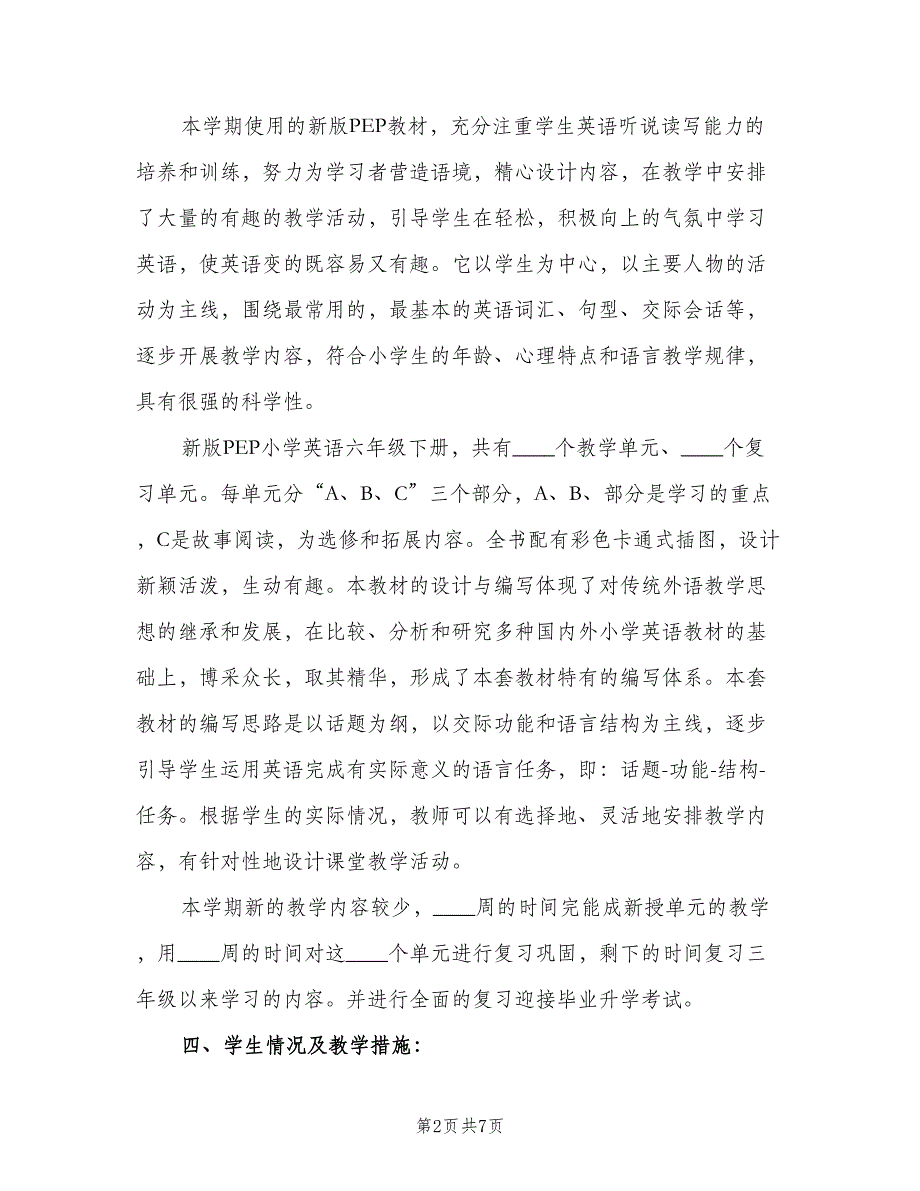 本学期使用的新版PEP教材，充分注重学生英语听说读写能力的
培养和训练，努力为学习者营造语境，精心设计内容，在教学中安排
了大量的有趣的教学活动，引导学生在轻松，积极向上的气氛中学习
英语，使英语变的既容易又有趣。它以学生为中心，以主要人物的活
动为主线，围绕最常用的，最基本的英语词汇、句型、交际会话等，
逐步开展教学内容，符合小学生的年龄、心理特点和语言教学规律，
具有很强的科学性。
新版PEP小学英语六年级下册，共有____个教学单元、____个复
习单元。每单元分“A、B、C”三个部分，A、B、部分是学习的重点
，C是故事阅读，为选修和拓展内容。全书配有彩色卡通式插图，设计
新颖活泼，生动有趣。本教材的设计与编写体现了对传统外语教学思
想的继承和发展，在比较、分析和研究多种国内外小学英语教材的基
础上，博采众长，取其精华，形成了本套教材特有的编写体系。本套
教材的编写思路是以话题为纲，以交际功能和语言结构为主线，逐步
引导学生运用英语完成有实际意义的语言任务，即：话题-功能-结构-
任务。根据学生的实际情况，教师可以有选择地、灵活地安排教学内
容，有针对性地设计课堂教学活动。
本学期新的教学内容较少，____周的时间完能成新授单元的教学
，用____周的时间对这____个单元进行复习巩固，剩下的时间复习三
年级以来学习的内容。并进行全面的复习迎接毕业升学考试。
四、学生情况及教学措施：
第2页共7页